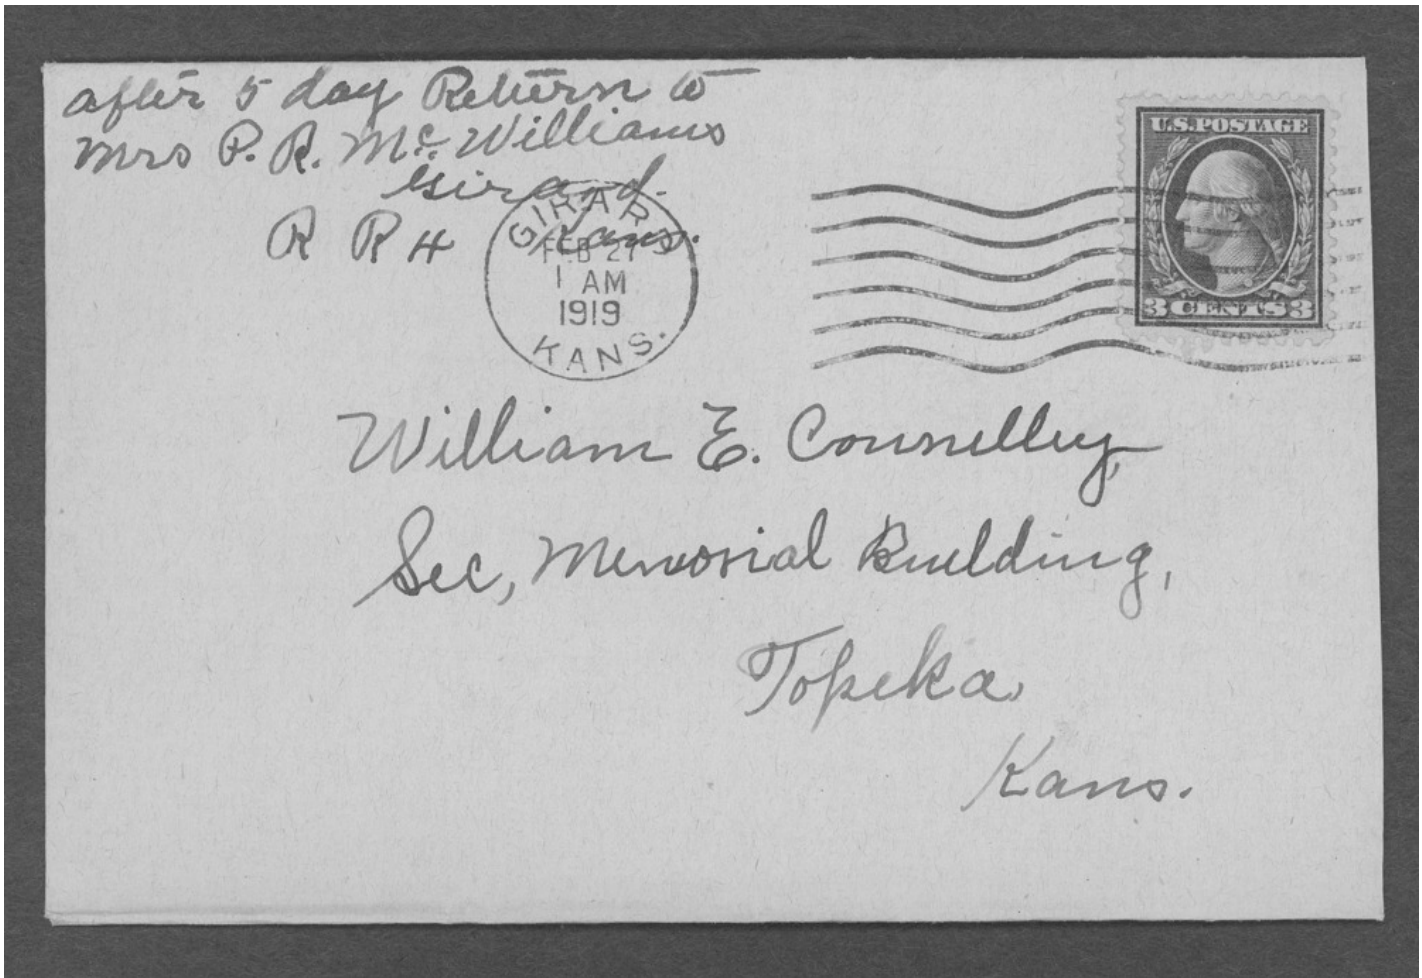 after 5 day Return to
Mrs P. R. Mc. Williams
Girard.
R R 4 Kans.
GIRARD
FEB 27
1 AM
1919
KANS.
U.S. POSTAGE
3 CENTS 3
William E. Connelley,
Sec, Memorial Building,
Topeka,
Kans.